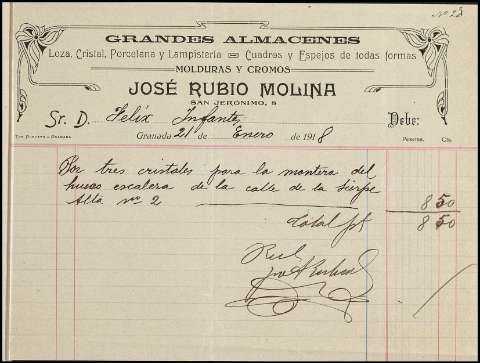 Nº 28
GRANDES ALMACENES
Loza, Cristal, Porcelana y Lampistería = Cuadros y Espejos de todas formas
MOLDURAS Y CROMOS
JOSÉ RUBIO MOLINA
SAN JERÓNIMO, 8
Sr. D. Félix Infante Debe:
Granada 21 de Enero de 1918 Pesetas. Cts.
Por tres cristales para la montera del
escalera de la calle de la Sierpe
Alta nº 2 8 50
Total 8 50
Recibí
José Rubio